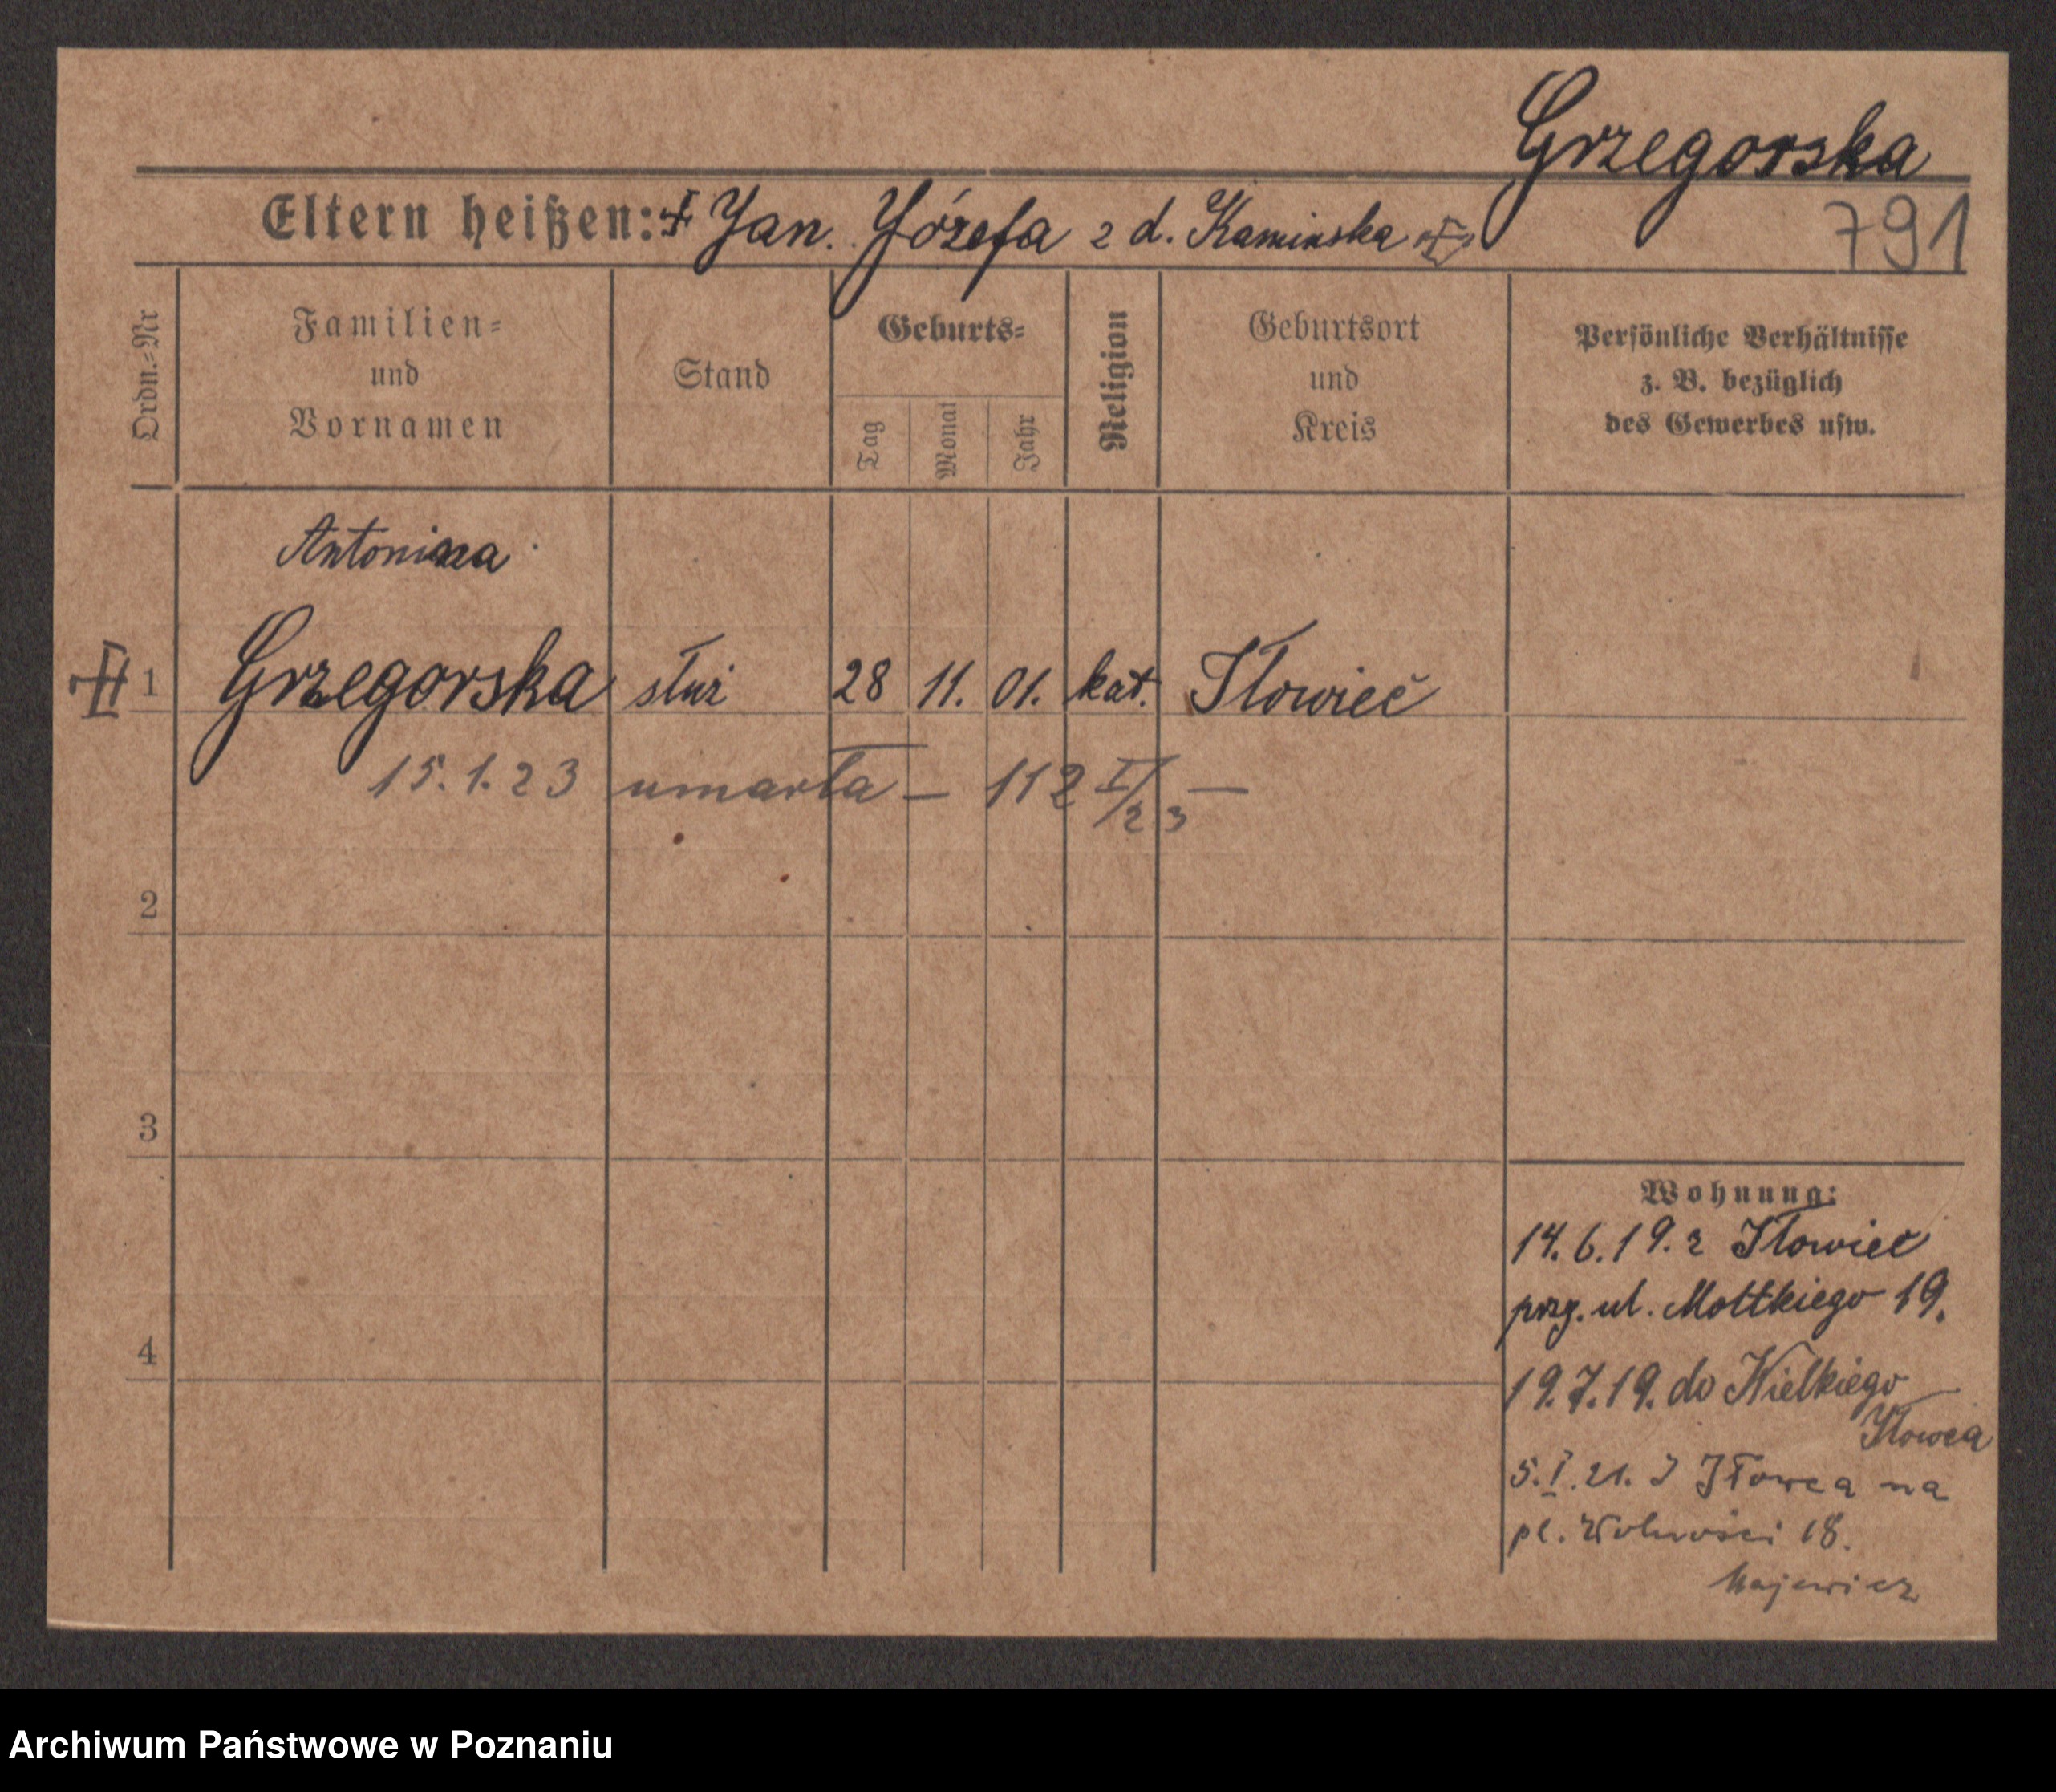 Grzegorska
Eltern heißen: Jan. Józefa z d. Kaminska
791
Ordn.=Nr
Familien=
und
Vornamen
Stand
Geburts=
Tag
Monat
Jahr
Religion
Geburtsort
und
Kreis
Persönliche Verhältnisse
z. B. bezüglich
des Gewerbes usw.
Antonina
1 Grzegorska służ 28 11. 01. kat. Iłowieć
15.1.23 umarła — 112 I/23 —
2
3
4
Wohnung:
14.6.19. z Iłowieć
prg. ul. Moltkiego 19.
19.7.19. do Wielkiego
Iłowca
5.I.21. z Iłowca na
pl. Wolności 18.
Majewicz
Archiwum Państwowe w Poznaniu